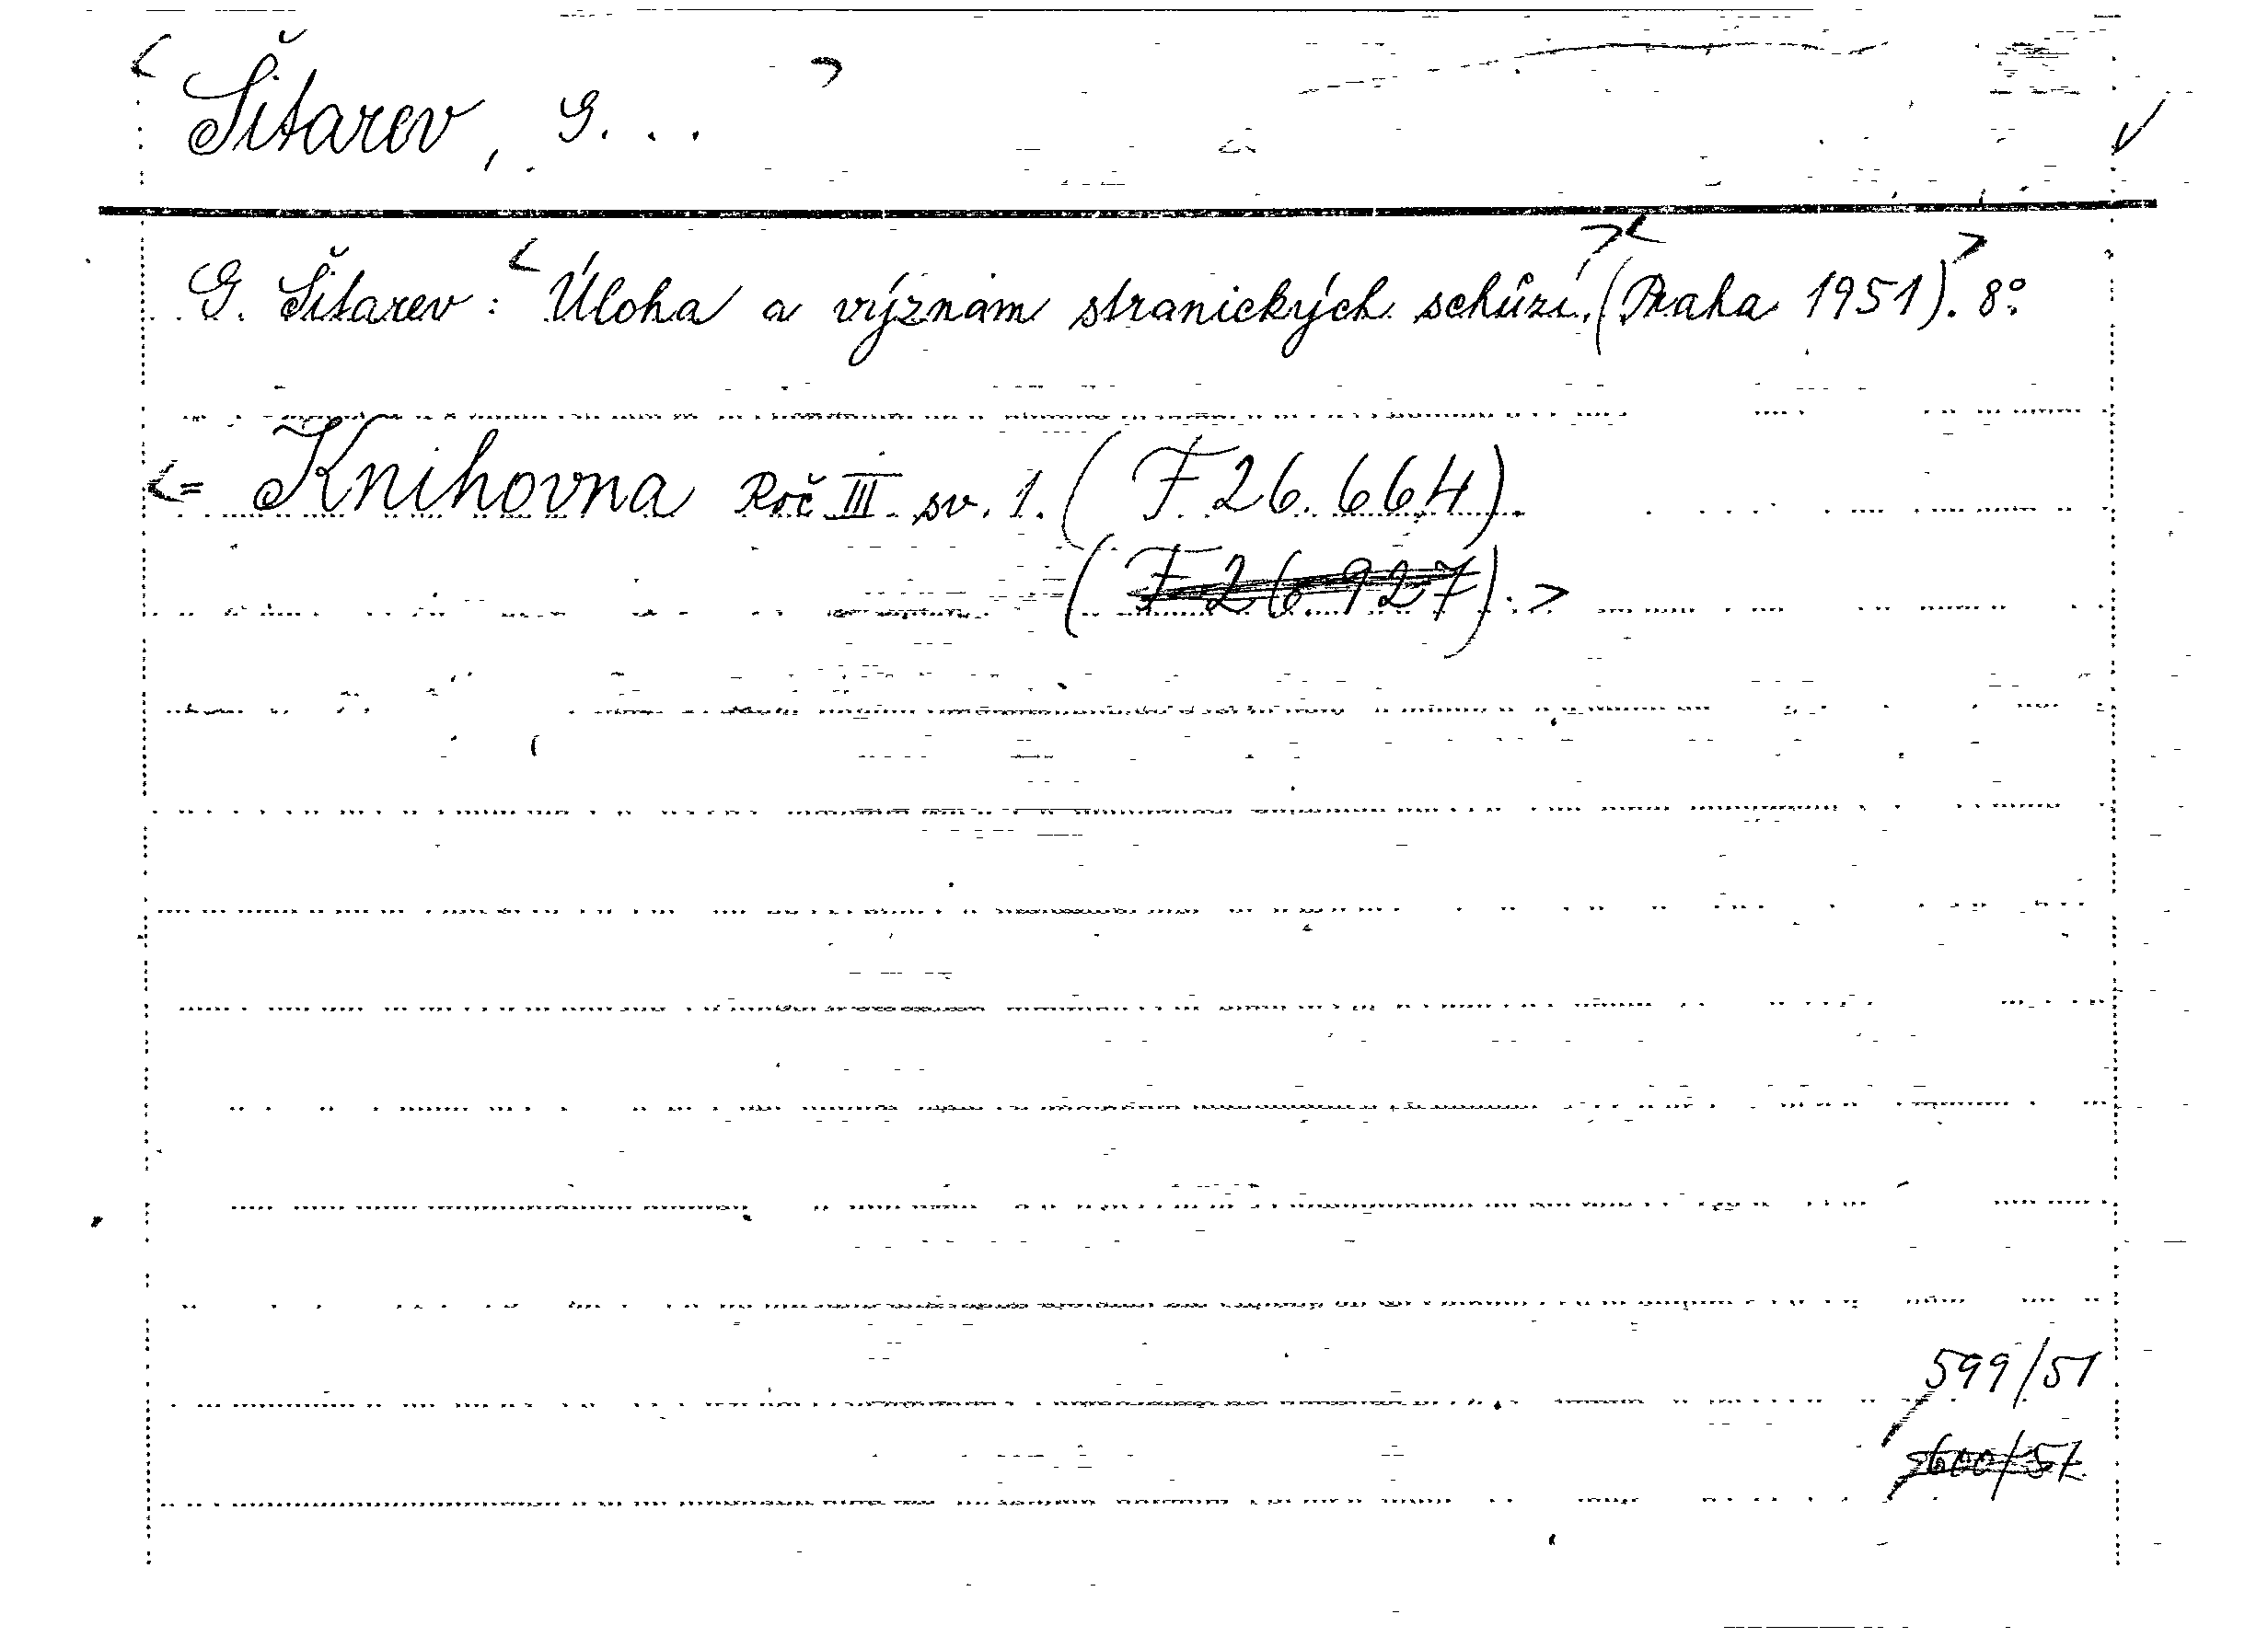 < Šitarev, G... >
G. Šitarev: < Úloha a význam stranických schůzí, >< (Praha 1951). > 8°
<= Knihovna Roč III sv. 1. (F 26.664).
(F 26.927). >
599/51
600/51